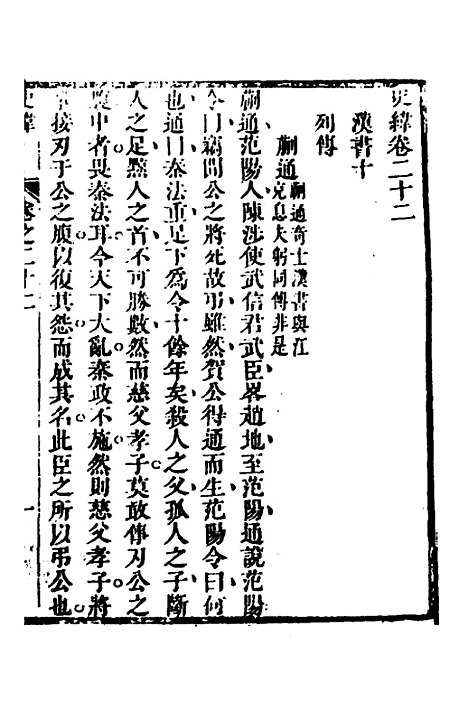 史緯卷二十二
漢書十
列傳
蒯通蒯通奇士漢書與江
充息夫躬同傳非是
蒯通范陽人陳涉使武信君武臣畧趙地至范陽通說范陽
令曰竊閔公之將死故弔雖然賀公得通而生范陽令曰何
也通曰秦法重足下爲令十餘年矣殺人之父孤人之子斷
人之足黥人之首不可勝數然而慈父孝子莫敢傳刃公之
腹中者畏秦法耳今天下大亂秦政不施然則慈父孝子將
接刃于公之腹以復其怨而成其名此臣之所以弔公也
史緯
卷之二十二
一